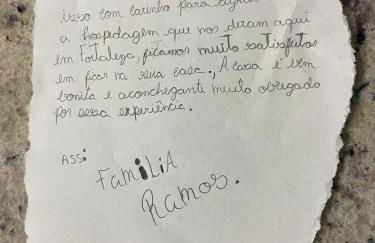 isso com carinho para
a hospedagem que nos deram aqui
em Fortaleza, ficamos muito satisfeitos
em ficar na sua casa., A casa é bem
bonita e aconchegante muito obrigado
por essa experiência.
Ass:
FamiLiA
Ramos.